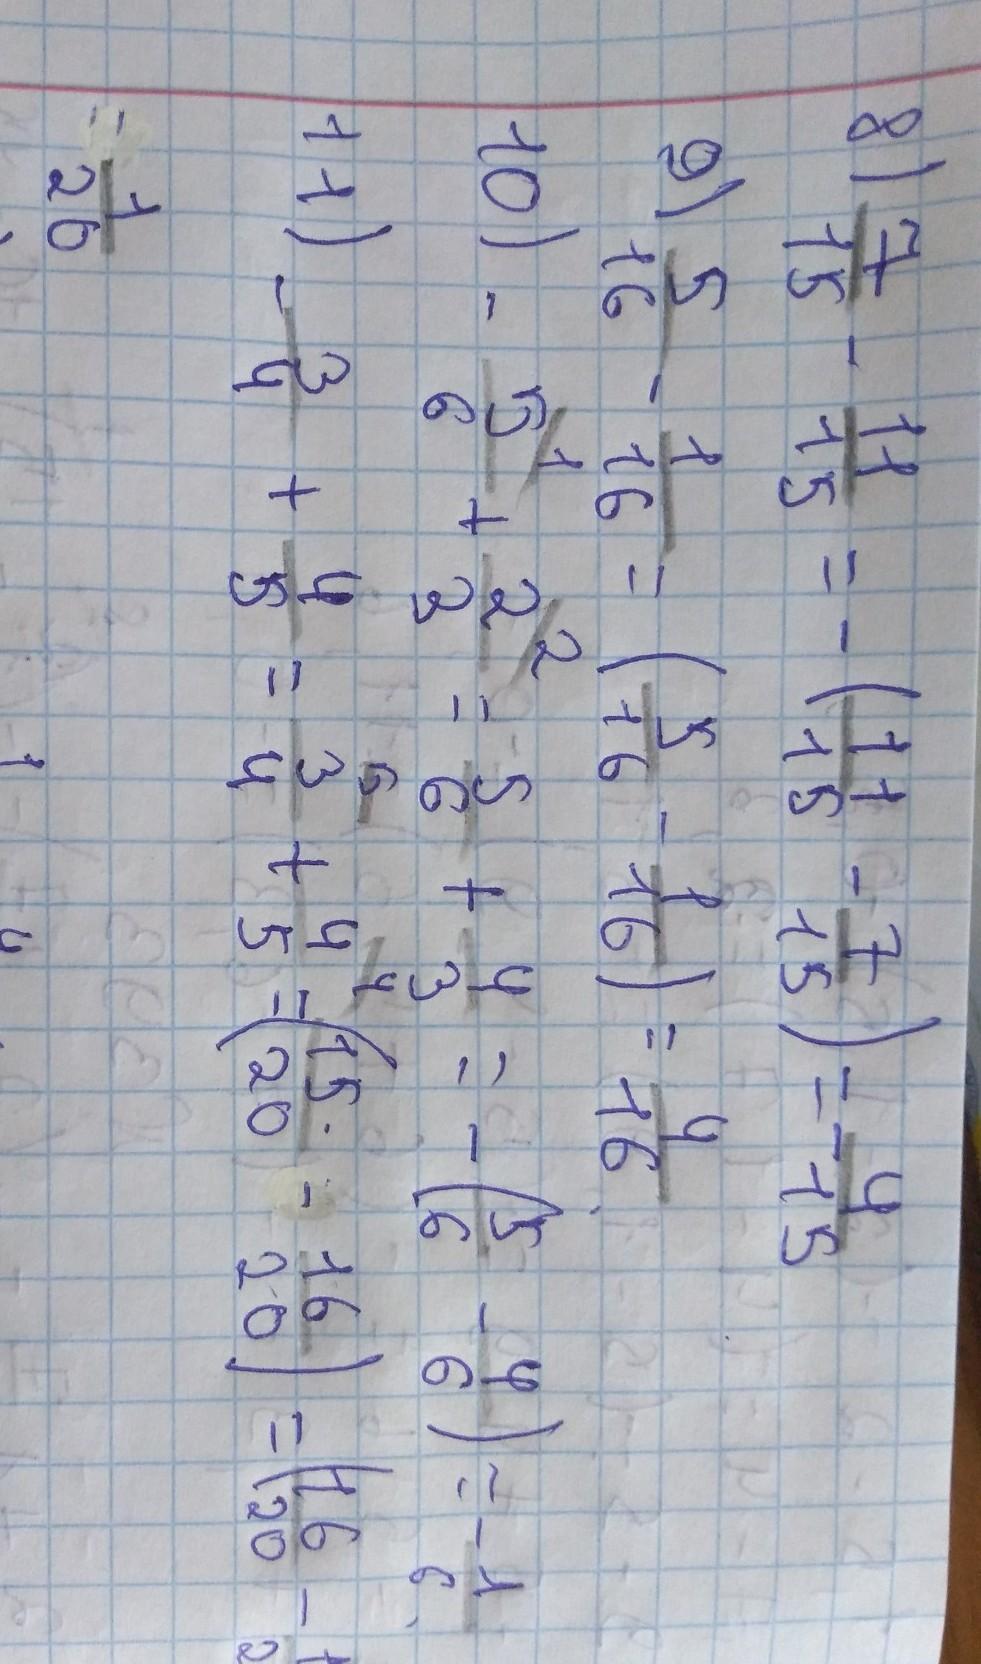 8) 7/15 - 11/15 = - (11/15 - 7/15) = - 4/15
9) 5/16 - 1/16 = (5/16 - 1/16) = 4/16
10) - 5/6 /1 + 2/3 /2 = 5/6 + 4/3 = - (5/6 - 4/6) = - 1/6
11) - 3/4 + 4/5 = 3/4 /5 + 4/5 /4 = - (15/20 - 16/20) = (16/20 - 1
= 1/20